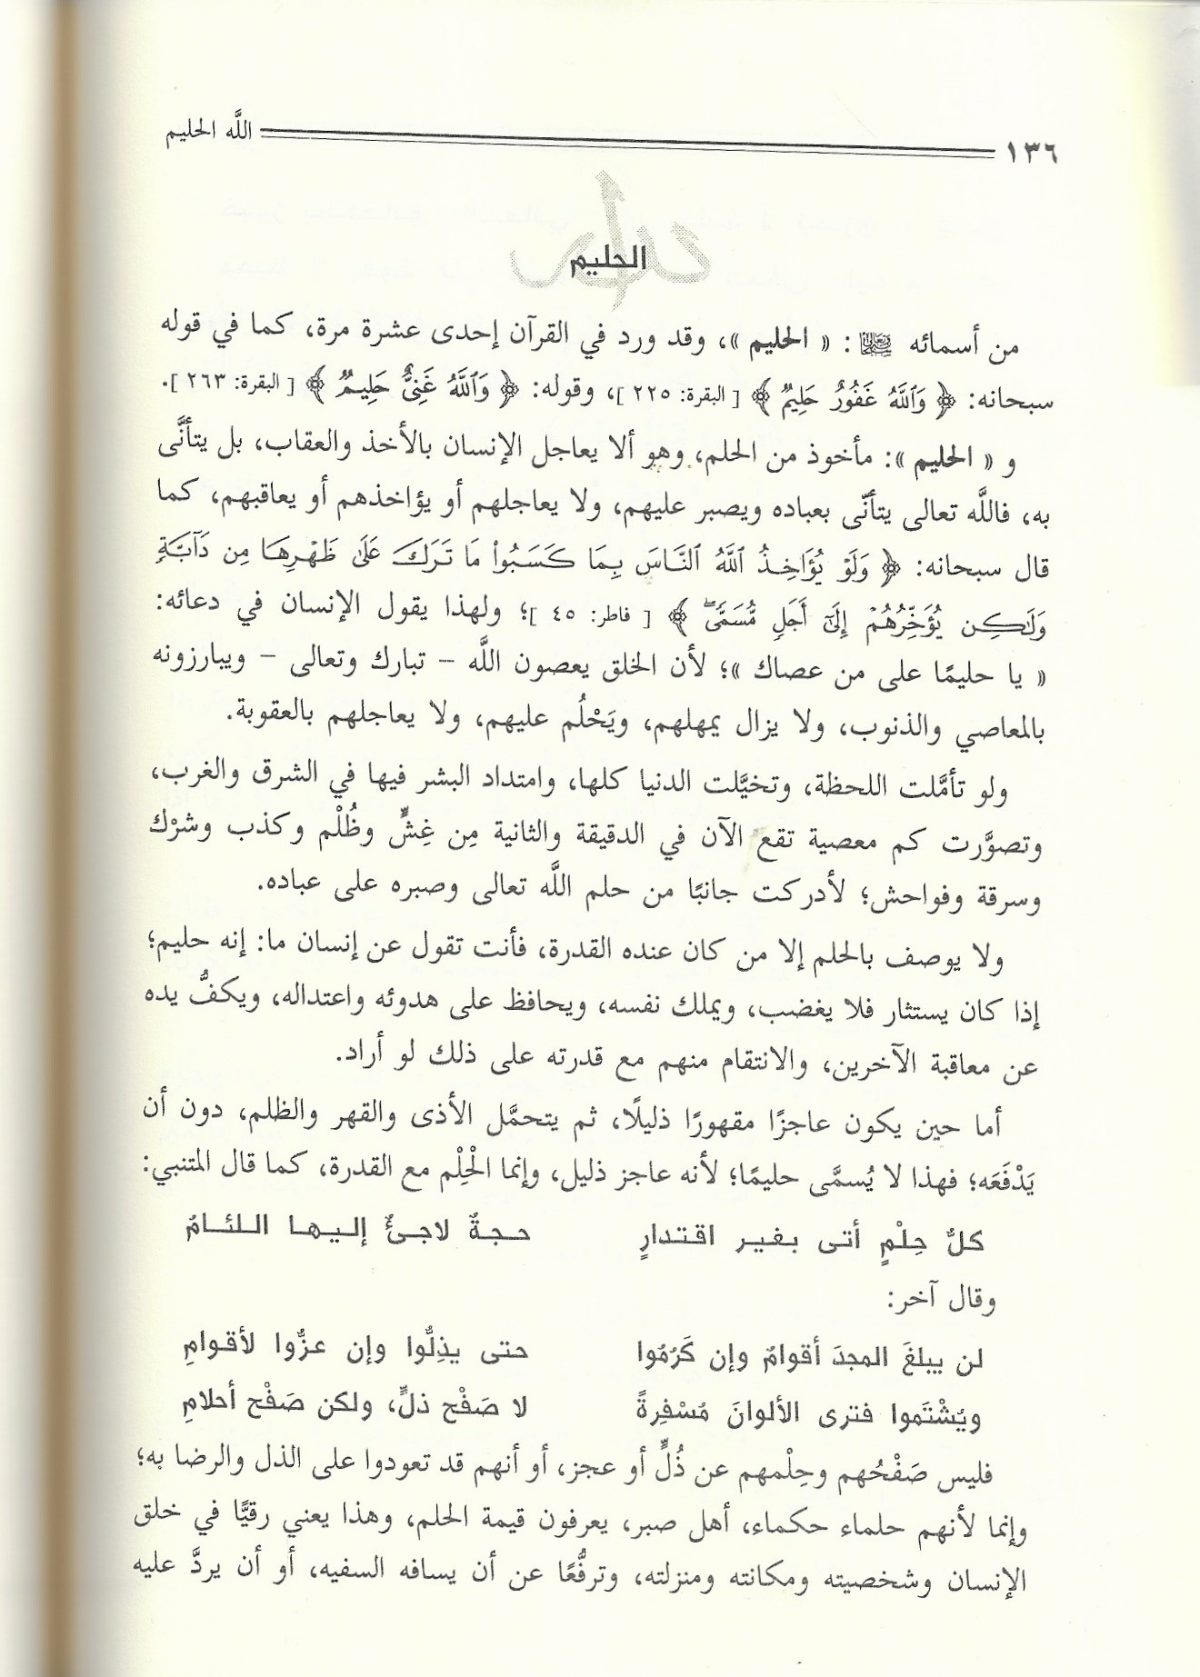 ١٣٦ اللَّه الحليم
الحليم
من أسمائه ﷻ : « الحليم »، وقد ورد في القرآن إحدى عشرة مرة، كما في قوله
سبحانه: ﴿ وَٱللَّهُ غَفُورٌ حَلِيمٌ ﴾ [ البقرة: ٢٢٥ ]، وقوله: ﴿ وَٱللَّهُ غَنِيٌّ حَلِيمٌ ﴾ [ البقرة: ٢٦٣ ].
و « الحليم »: مأخوذ من الحلم، وهو ألا يعاجل الإنسان بالأخذ والعقاب، بل يتأنَّى
به، فاللَّه تعالى يتأنّى بعباده ويصبر عليهم، ولا يعاجلهم أو يؤاخذهم أو يعاقبهم، كما
قال سبحانه: ﴿ وَلَوْ يُؤَاخِذُ ٱللَّهُ ٱلنَّاسَ بِمَا كَسَبُواْ مَا تَرَكَ عَلَىٰ ظَهْرِهَا مِن دَآبَّةٍ
وَلَٰكِن يُؤَخِّرُهُمْ إِلَىٰٓ أَجَلٍ مُّسَمًّىۖ ﴾ [ فاطر: ٤٥ ]؛ ولهذا يقول الإنسان في دعائه:
« يا حليمًا على من عصاك »؛ لأن الخلق يعصون اللَّه – تبارك وتعالى – ويبارزونه
بالمعاصي والذنوب، ولا يزال يمهلهم، ويَحْلُم عليهم، ولا يعاجلهم بالعقوبة.
ولو تأمَّلت اللحظة، وتخيَّلت الدنيا كلها، وامتداد البشر فيها في الشرق والغرب،
وتصوَّرت كم معصية تقع الآن في الدقيقة والثانية مِن غِشٍّ وظُلْم وكذب وشرْك
وسرقة وفواحش؛ لأدركت جانبًا من حلم اللَّه تعالى وصبره على عباده.
ولا يوصف بالحلم إلا من كان عنده القدرة، فأنت تقول عن إنسان ما: إنه حليم؛
إذا كان يستثار فلا يغضب، ويملك نفسه، ويحافظ على هدوئه واعتداله، ويكفُّ يده
عن معاقبة الآخرين، والانتقام منهم مع قدرته على ذلك لو أراد.
أما حين يكون عاجزًا مقهورًا ذليلًا، ثم يتحمَّل الأذى والقهر والظلم، دون أن
يَدْفَعَه؛ فهذا لا يُسمَّى حليمًا؛ لأنه عاجز ذليل، وإنما الْحِلْم مع القدرة، كما قال المتنبي:
كلُ حِلْمٍ أتى بغير اقتدارٍ حجةٌ لاجئٌ إليها اللئامُ
وقال آخر:
لن يبلغَ المجدَ أقوامٌ وإن كَرُمُوا حتى يذِلُّوا وإن عزُّوا لأقوامِ
ويُشْتَموا فترى الألوانَ مُسْفِرةً لا صَفْح ذلٍّ، ولكن صَفْح أحلامِ
فليس صَفْحُهم وحِلْمهم عن ذُلٍّ أو عجز، أو أنهم قد تعودوا على الذل والرضا به؛
وإنما لأنهم حلماء حكماء، أهل صبر، يعرفون قيمة الحلم، وهذا يعني رقيًّا في خلق
الإنسان وشخصيته ومكانته ومنزلته، وترفُّعًا عن أن يسافه السفيه، أو أن يردَّ عليه